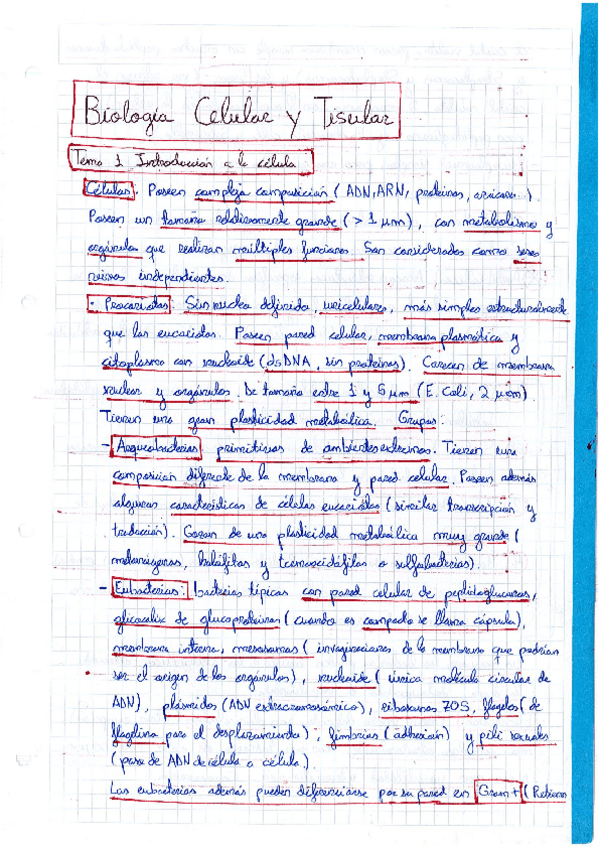 Biología Celular y Tisular
Tema 1 Introducción a la célula
Células: Poseen compleja composición (ADN, ARN, proteínas, azúcares..)
Poseen un tamaño relativamente grande (>1 µm), con metabolismo y
orgánulos que realizan múltiples funciones. Son considerados como seres
vivos independientes.
· Procariotas: Sin núcleo definido, unicelulares, más simples estructuralmente
que las eucariotas. Poseen pared celular, membrana plasmática y
citoplasma con nucleoide (dsDNA, sin proteínas). Carecen de membrana
nuclear y orgánulos. De tamaño entre 1 y 5 µm (E. Coli, 2 µm).
Tienen una gran plasticidad metabólica. Grupos:
- Arqueobacterias: primitivas de ambientes extremos. Tienen una
composición diferente de la membrana y pared celular. Poseen además
algunas características de células eucariotas (similar transcripción y
traducción). Gozan de una plasticidad metabólica muy grande (
metanógenas, halófitas y termoacidófilas o sulfobacterias).
- Eubacterias: bacterias típicas con pared celular de peptidoglucanos,
glicocalix de glucoproteínas (cuando es compacto se llama cápsula),
membrana interna, mesosomas (invaginaciones de la membrana que podrían
ser el origen de los orgánulos), nucleoide (única molécula circular de
ADN), plásmidos (ADN extracromosómico), ribosomas 70S, flagelos (de
flagelina para el desplazamiento), fimbrias (adhesión) y pili sexuales
(paso de ADN de célula a célula.)
Las eubacterias además pueden diferenciarse por su pared en Gram + (